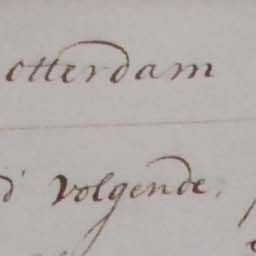 otterdam
d' volgende,